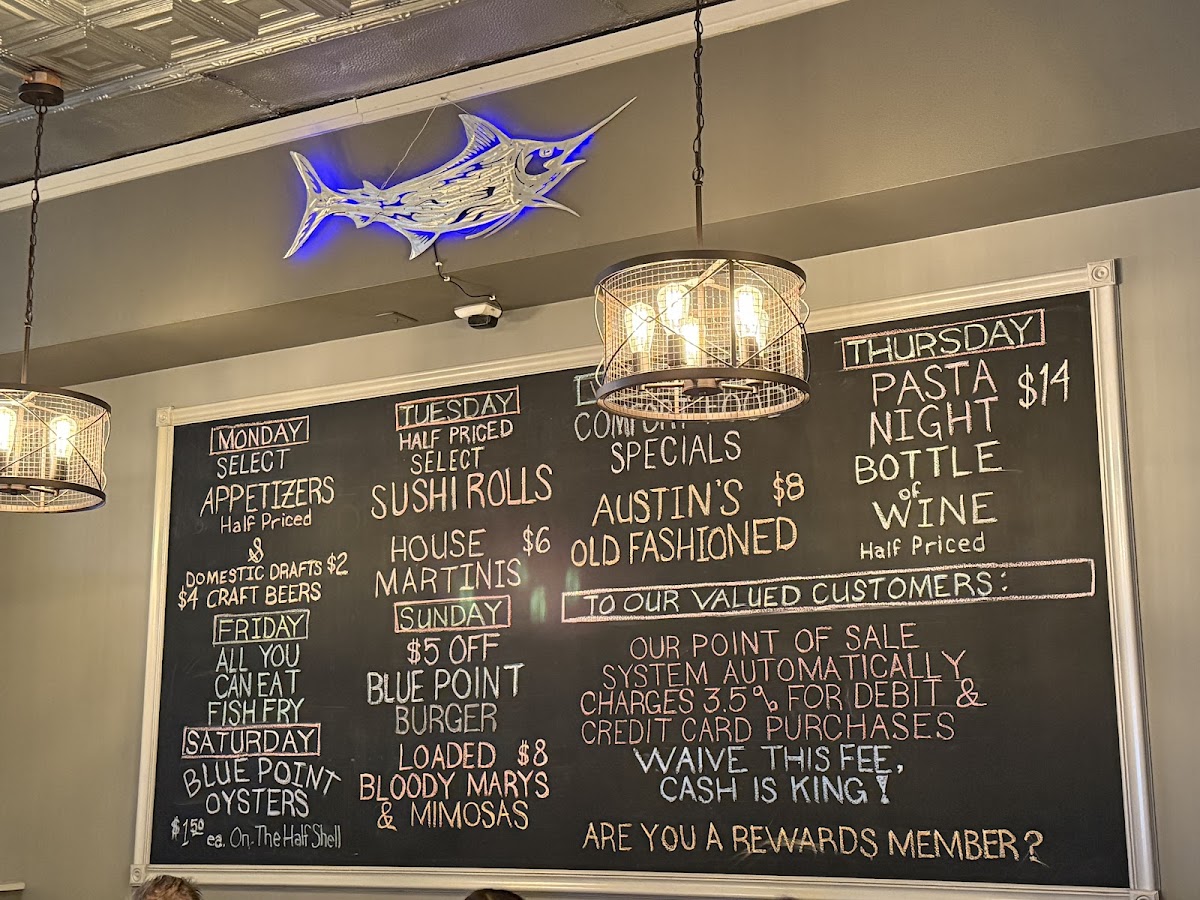 MONDAY
SELECT
APPETIZERS
Half Priced
&
DOMESTIC DRAFTS $2
$4 CRAFT BEERS
TUESDAY
HALF PRICED
SELECT
SUSHI ROLLS
HOUSE $6
MARTINIS
SPECIALS
AUSTIN'S $8
OLD FASHIONED
THURSDAY
PASTA $14
NIGHT
BOTTLE
of
WINE
Half Priced
FRIDAY
ALL YOU
CAN EAT
FISH FRY
SATURDAY
BLUE POINT
OYSTERS
$1.50 ea. On-The Half Shell
SUNDAY
$5 OFF
BLUE POINT
BURGER
LOADED $8
BLOODY MARYS
& MIMOSAS
TO OUR VALUED CUSTOMERS:
OUR POINT OF SALE
SYSTEM AUTOMATICALLY
CHARGES 3.5% FOR DEBIT &
CREDIT CARD PURCHASES
WAIVE THIS FEE,
CASH IS KING!
ARE YOU A REWARDS MEMBER?